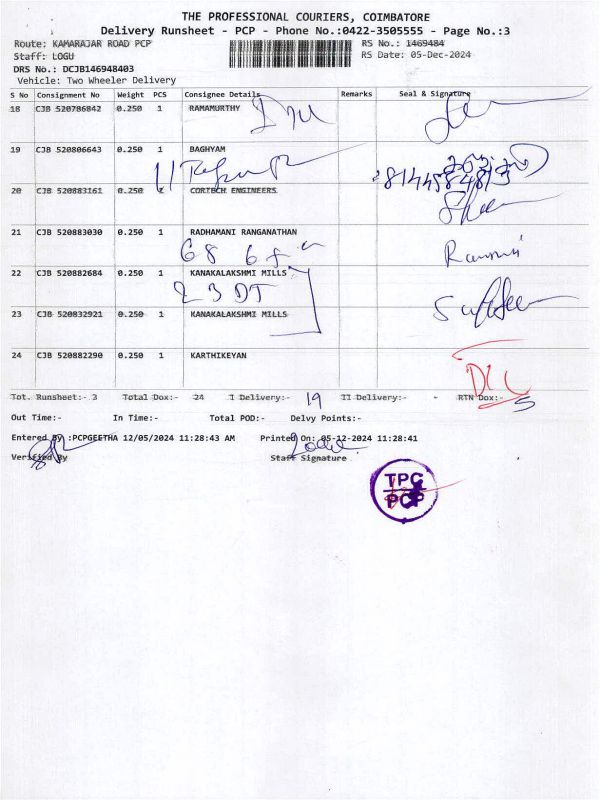 THE PROFESSIONAL COURIERS, COIMBATORE
Delivery Runsheet - PCP - Phone No.:0422-3505555 - Page No.:3
Route: KAMARAJAR ROAD PCP RS No.: 1469484
Staff: LOGU RS Date: 05-Dec-2024
DRS No.: DCJB146948403
Vehicle: Two Wheeler Delivery
S No Consignment No Weight PCS Consignee Details Remarks Seal & Signature
18 CJB 520786842 0.250 1 RAMAMURTHY
19 CJB 520806643 0.250 1 BAGHYAM
20 CJB 520883161 0.250 1 CORTECH ENGINEERS
21 CJB 520883030 0.250 1 RADHAMANI RANGANATHAN
22 CJB 520882684 0.250 1 KANAKALAKSHMI MILLS
23 DT
23 CJB 520832921 0.250 1 KANAKALAKSHMI MILLS
24 CJB 520882290 0.250 1 KARTHIKEYAN
Tot. Runsheet:- 3 Total Dox:- 24 I Delivery:- 19 II Delivery:- - RTN Dox:- 5
Out Time:- In Time:- Total POD:- Delvy Points:-
Entered By :PCPGEETHA 12/05/2024 11:28:43 AM Printed On: 05-12-2024 11:28:41
Verified By Staff Signature
TPC
PCP